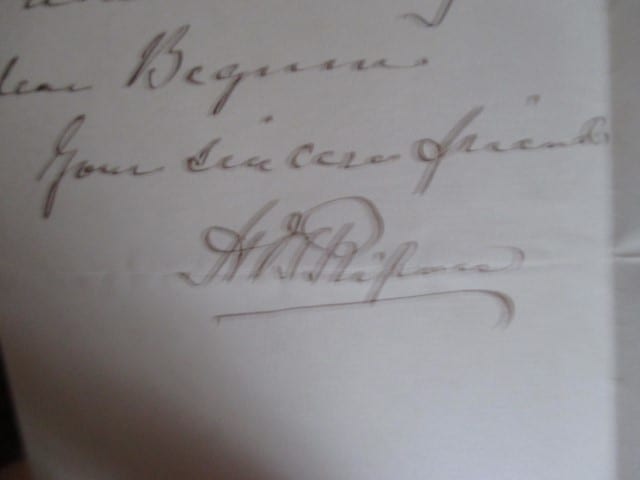 dear Begum
Your sincere friend
H V Ripon